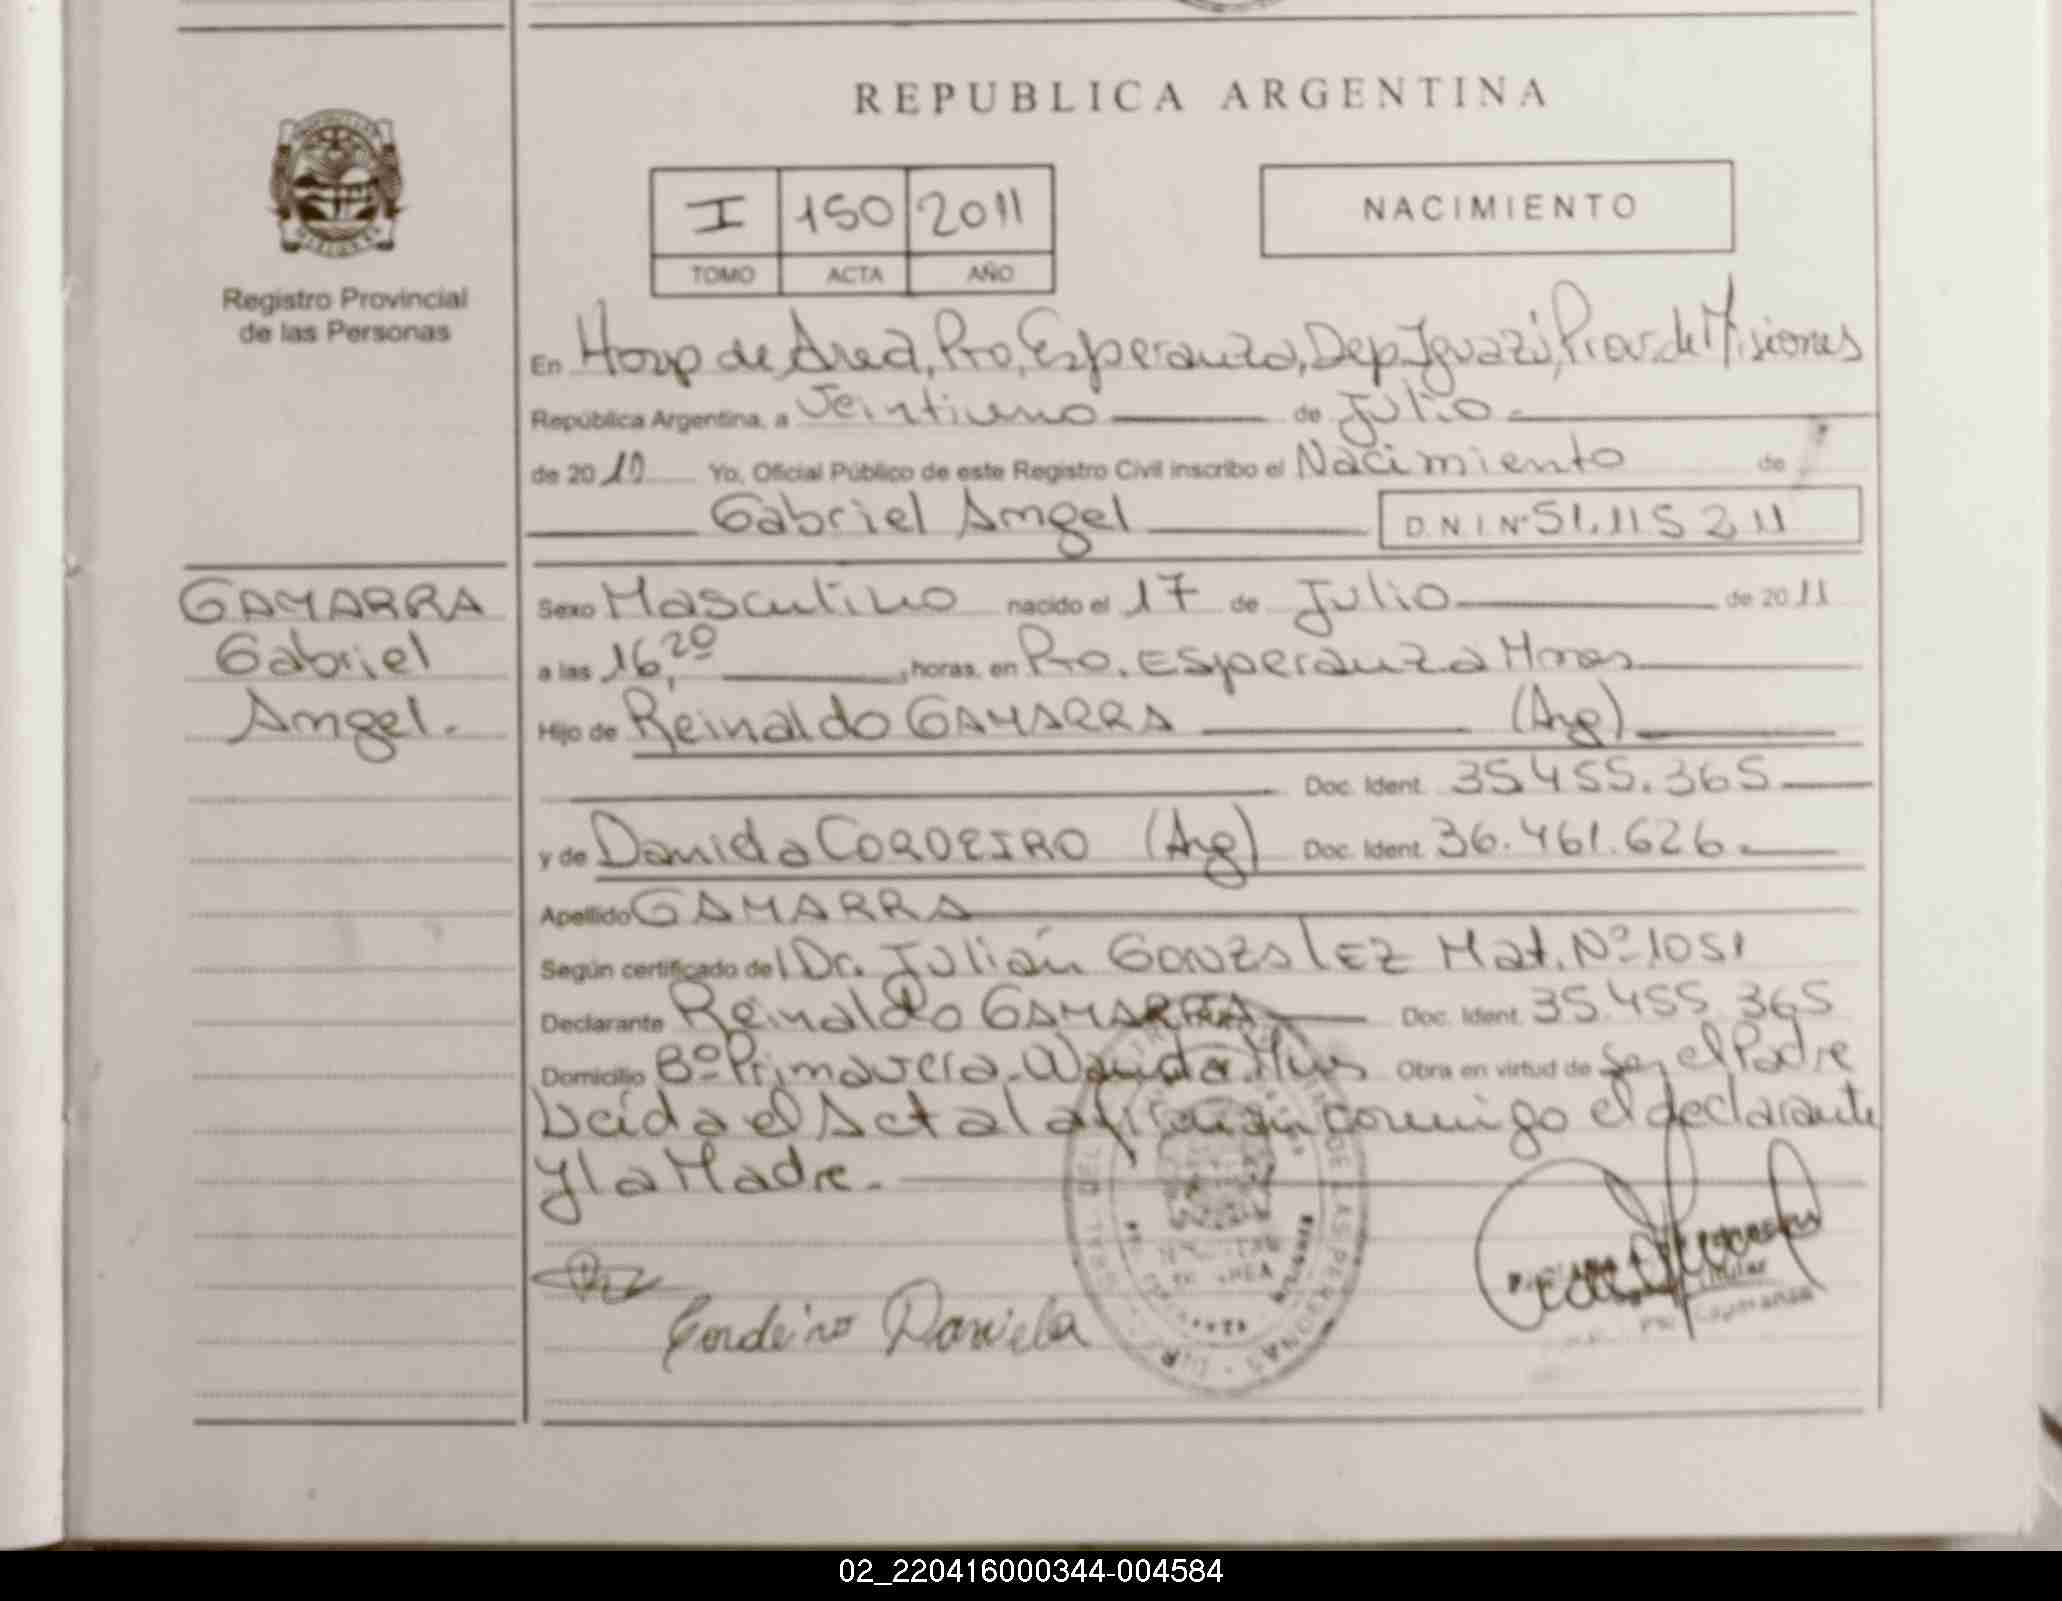 REPUBLICA ARGENTINA
I 150 2011
TOMO ACTA AÑO
NACIMIENTO
Registro Provincial
de las Personas
En Hosp de Area, Pto, Esperanza, Dep. Iguazú, Prov. de Misiones
República Argentina, a Veintiuno de Julio
de 2010 Yo, Oficial Público de este Registro Civil inscribo el Nacimiento de
Gabriel Angel D.N.I. Nº 51.115 211
GAMARRA
Gabriel
Angel.
Sexo Masculino nacido el 17 de Julio de 2011
a las 16,20 horas, en Pto. Esperanza Mnes
Hijo de Reinaldo GAMARRA (Arg)
Doc. Ident. 35.455.365
y de Daniela CORDEIRO (Arg) Doc. Ident. 36.461.626.
Apellido GAMARRA
Según certificado del Dr. Julián GONZALEZ Mat. Nº 1051
Declarante Reinaldo GAMARRA Doc. Ident. 35.455.365
Domicilio Bº Primavera - Wanda Mnes Obra en virtud de Ser el Padre
Leida el Acta la firman conmigo el declarante
y la Madre.
Cordeiro Daniela
DE LAS PERSONAS
02_220416000344-004584